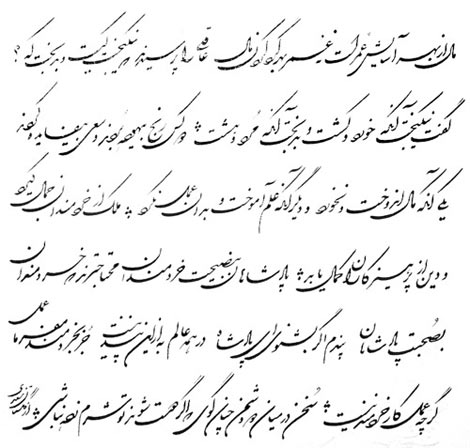 مال از بهر آسایش عمر است نه عمر از بهر گرد کردن مال عاقلی را پرسیدند نیکبخت کیست و بدبخت که؟
گفت نیکبخت آنکه خورد و کشت و بدبخت آنکه مرد و هشت دو کس رنج بیهوده بردند و سعی بیفایده کردند
یکی آنکه مال اندوخت و نخورد و دیگر آنکه علم آموخت و بدان عمل نکرد ملک از خردمندان جمال گیرد
و دین از پرهیزگاران کمال یابد پادشاهان بنصیحت خردمندان محتاجترند از خردمندان
بصحبت پادشاهان پندم اگر بشنوی ای پادشاه در همه عالم به ازین پند نیست جز بخردمند مفرما عمل
گرچه عمل کار خردمند نیست سخن در میان دو دشمن چنان گوی که اگر دوست شوند تو شرم زده نباشی